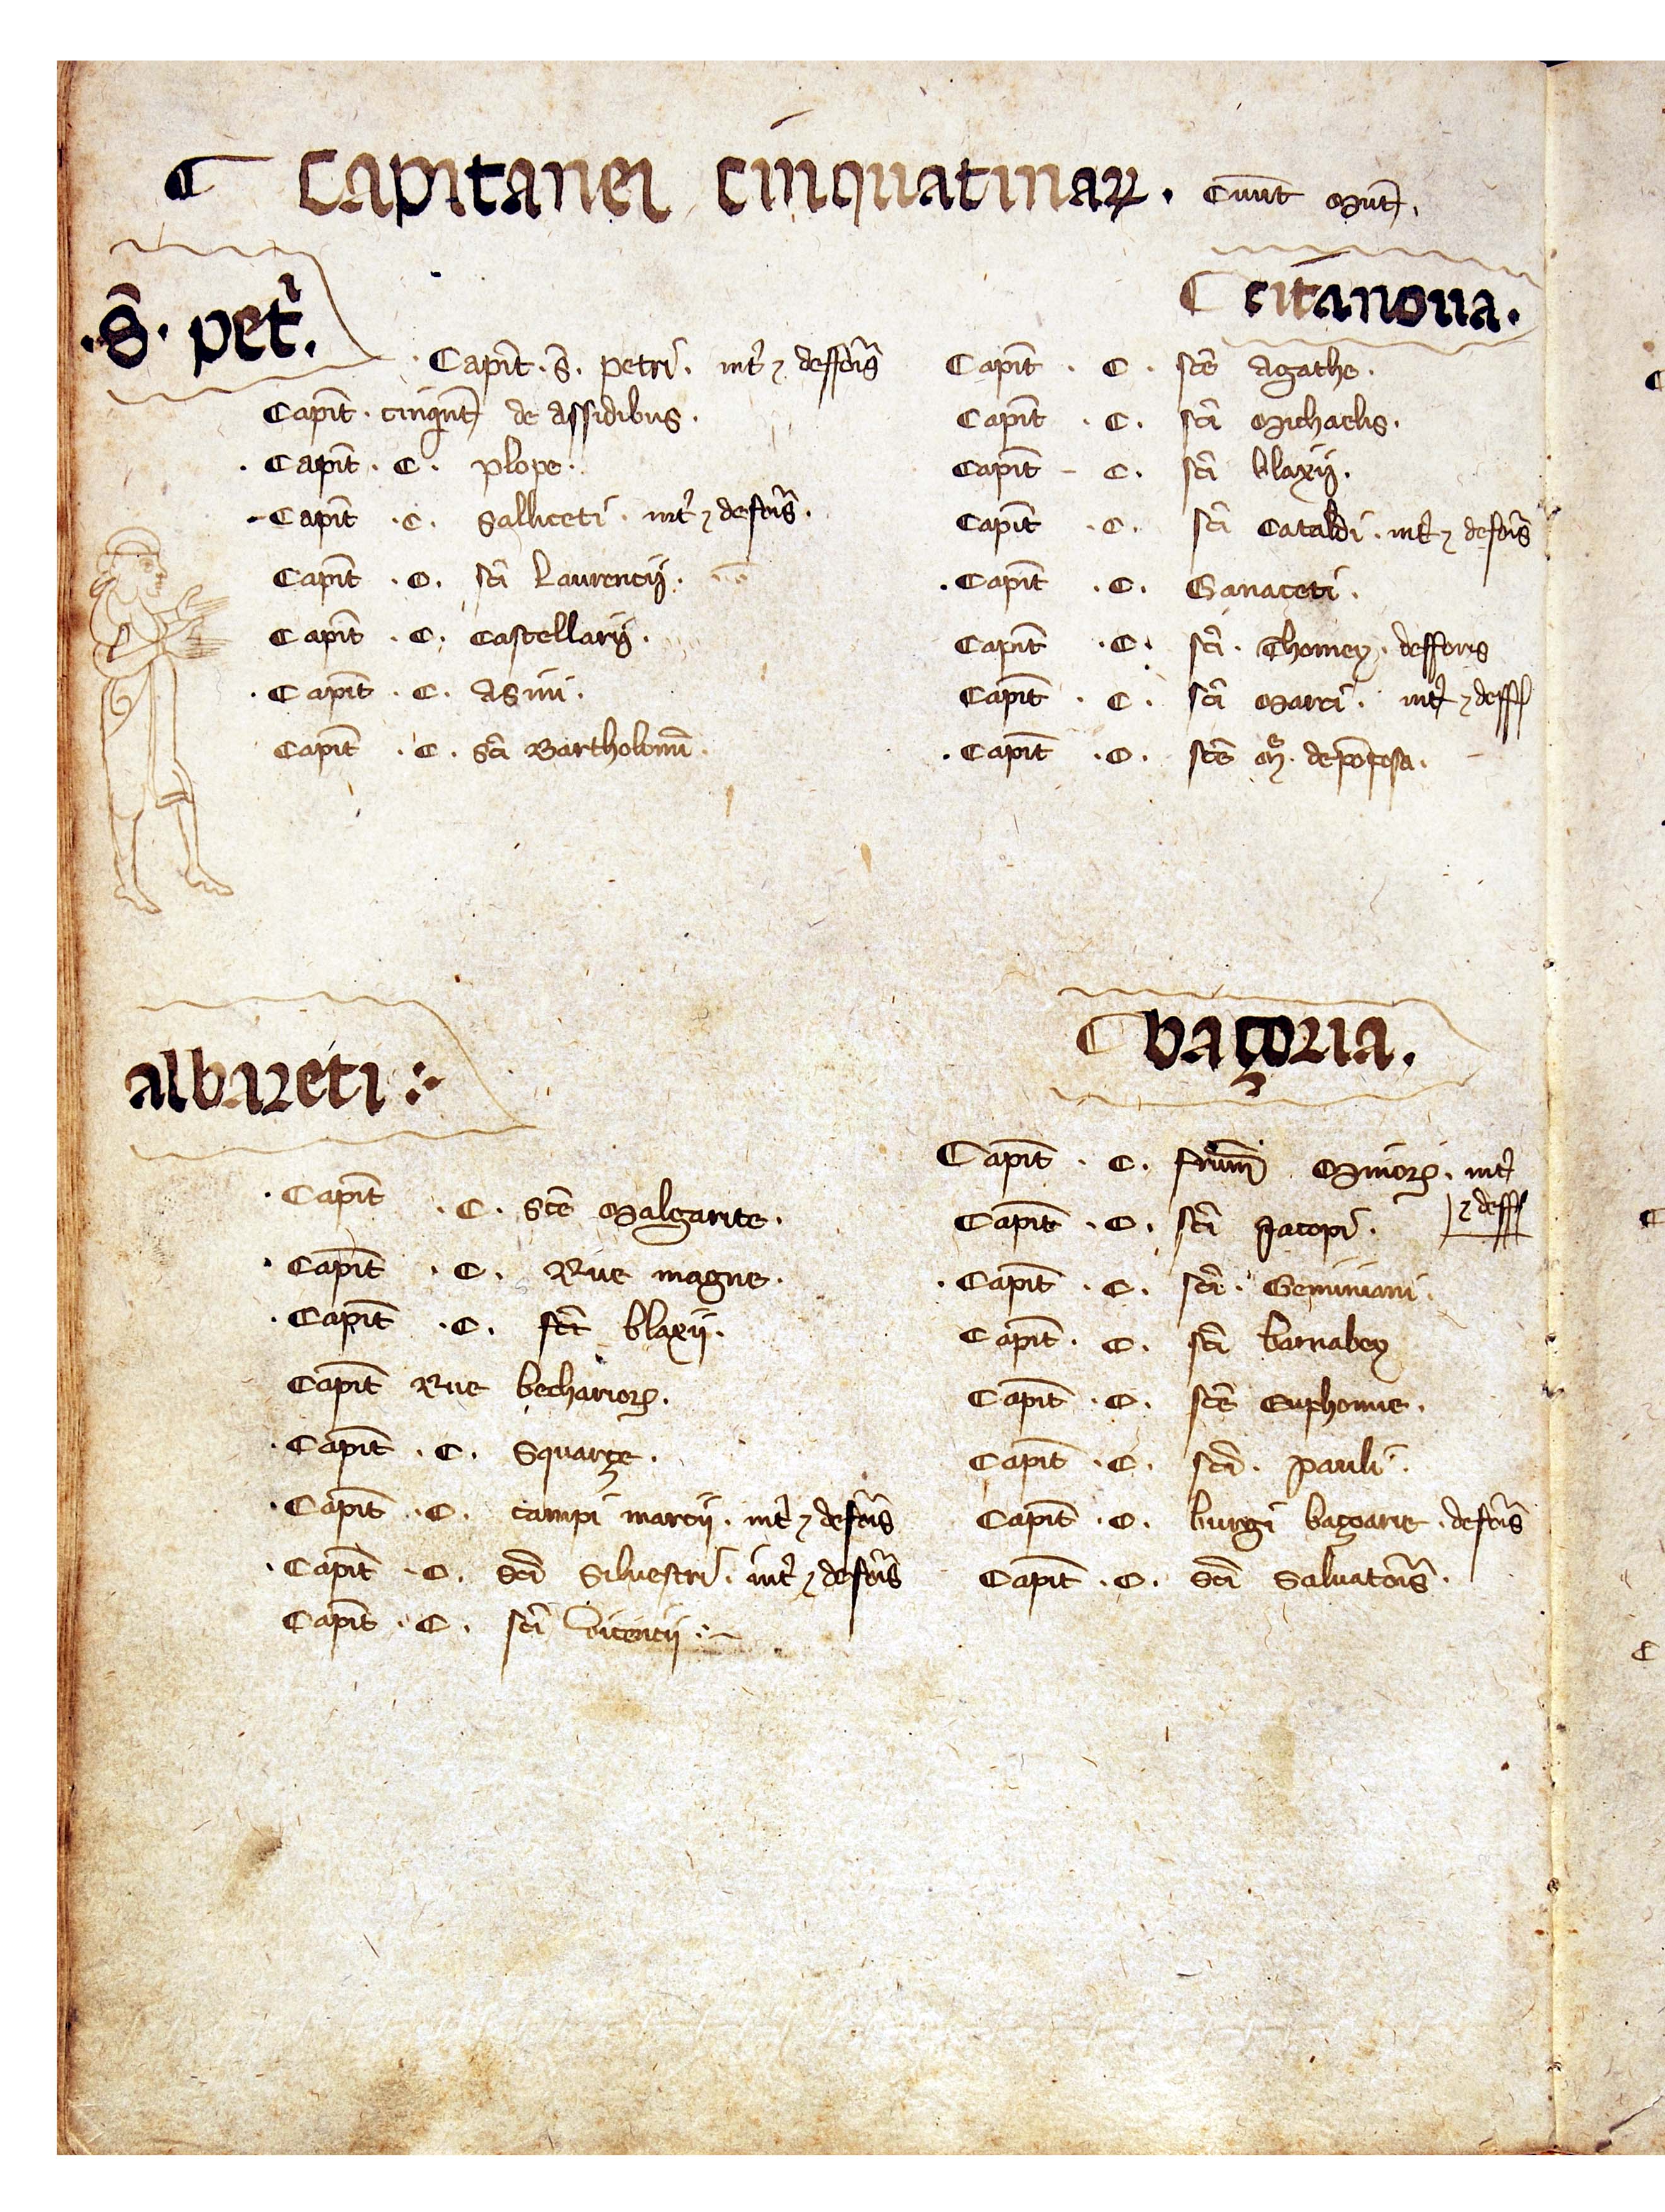 Capitanei cinquatinaꝝ. Ciuit Mut.
.S̄. pet͛.
. Capit̄ . s̄. petri . int͛ ⁊ deffoīs
Capit̄ . cinqūt de assidibus .
. Capit̄ . C . plope .
. Capit̄ . C . Salliceti . int͛ ⁊ defoīs .
Capit̄ . C . sc̄i Laurencij .
Capit̄ . C . Castellarij .
. Capit̄ . C . Asini .
Capit̄ . C . Sc̄i Bartholomī .
Citanoua .
Capit̄ . C . sc̄e Agathe .
Capit̄ . C . sc̄i Michaelis .
Capit̄ . C . sc̄i blaxij .
Capit̄ . C . sc̄i Cataldi . int͛ ⁊ defoīs
. Capit̄ . C . Ganaceti .
Capit̄ . C . sc̄i . Thomey . defforis
Capit̄ . C . sc̄i Marci . int͛ ⁊ deff
. Capit̄ . C . sc̄e M̄ . de pōposa .
albareti
. Capit̄ . C . Sc̄e Malgarite .
. Capit̄ . C . Rue magne .
. Capit̄ . C . sc̄i blaxij .
Capit̄ Rue becharioꝝ .
. Capit̄ . C . Squarçe .
. Capit̄ . C . campi marcij . int͛ ⁊ defoīs
. Capit̄ . C . Sc̄i Siluestri . int͛ ⁊ defoīs
Capit̄ . C . sc̄i Vicencij
baçoria .
Capit̄ . C . fr̄um Minoꝝ . int͛
⁊ deff
Capit̄ . C . sc̄i Jacopi .
. Capit̄ . C . sc̄i . Geminiani .
Capit̄ . C . sc̄i barnabey
Capit̄ . C . sc̄e Euphomie .
Capit̄ . C . sc̄i . pauli .
Capit̄ . C . burgi baçoarie . defoīs
Capit̄ . C . Sc̄i Saluatoīs .